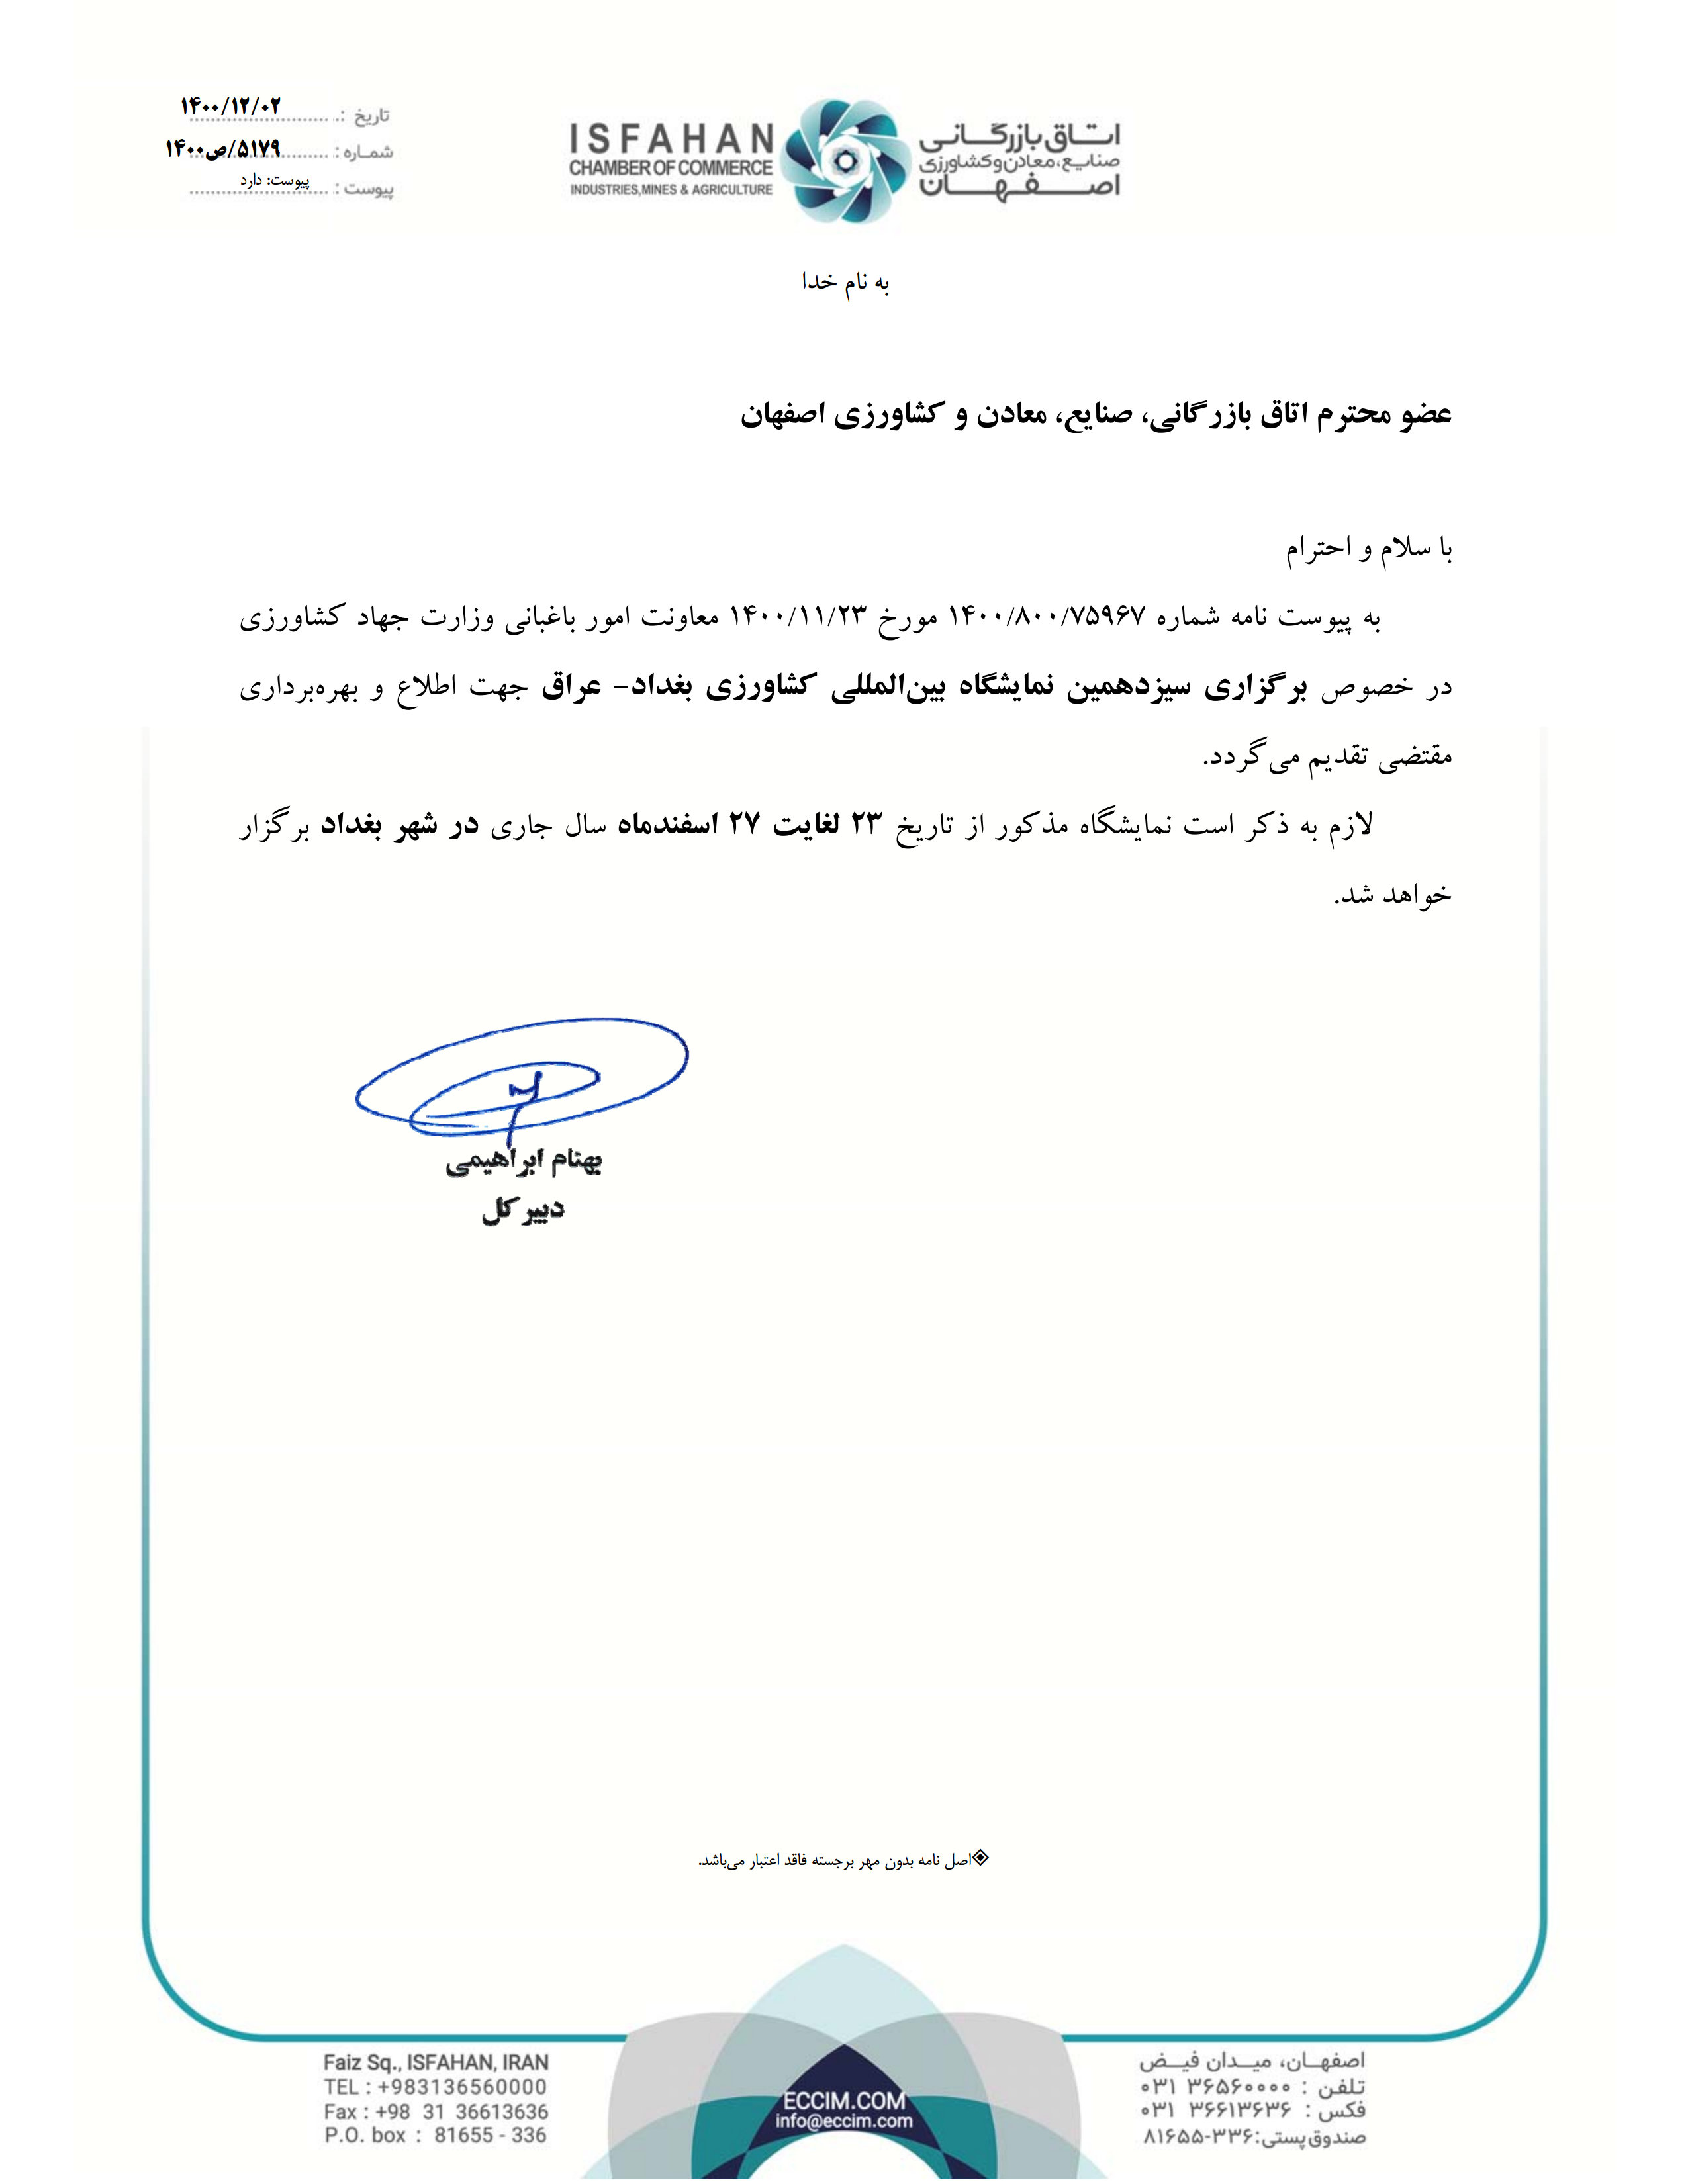 تاریخ : ۱۴۰۰/۱۲/۰۲
شماره : ۵۱۷۹/ص۱۴۰۰
پیوست : پیوست: دارد
ISFAHAN
CHAMBER OF COMMERCE
INDUSTRIES,MINES & AGRICULTURE
اتاق بازرگانی
صنایع، معادن و کشاورزی
اصفهان
به نام خدا
عضو محترم اتاق بازرگانی، صنایع، معادن و کشاورزی اصفهان
با سلام و احترام
به پیوست نامه شماره ۱۴۰۰/۸۰۰/۷۵۹۶۷ مورخ ۱۴۰۰/۱۱/۲۳ معاونت امور باغبانی وزارت جهاد کشاورزی
در خصوص برگزاری سیزدهمین نمایشگاه بین‌المللی کشاورزی بغداد- عراق جهت اطلاع و بهره‌برداری
مقتضی تقدیم می‌گردد.
لازم به ذکر است نمایشگاه مذکور از تاریخ ۲۳ لغایت ۲۷ اسفندماه سال جاری در شهر بغداد برگزار
خواهد شد.
بهنام ابراهیمی
دبیر کل
اصل نامه بدون مهر برجسته فاقد اعتبار می‌باشد.
اصفهان، میدان فیض
تلفن : ۳۶۵۶۰۰۰۰ ۰۳۱
فکس : ۳۶۶۱۳۶۳۶ ۰۳۱
صندوق پستی: ۳۳۶-۸۱۶۵۵
ECCIM.COM
info@eccim.com
Faiz Sq., ISFAHAN, IRAN
TEL : +983136560000
Fax : +98 31 36613636
P.O. box : 81655 - 336